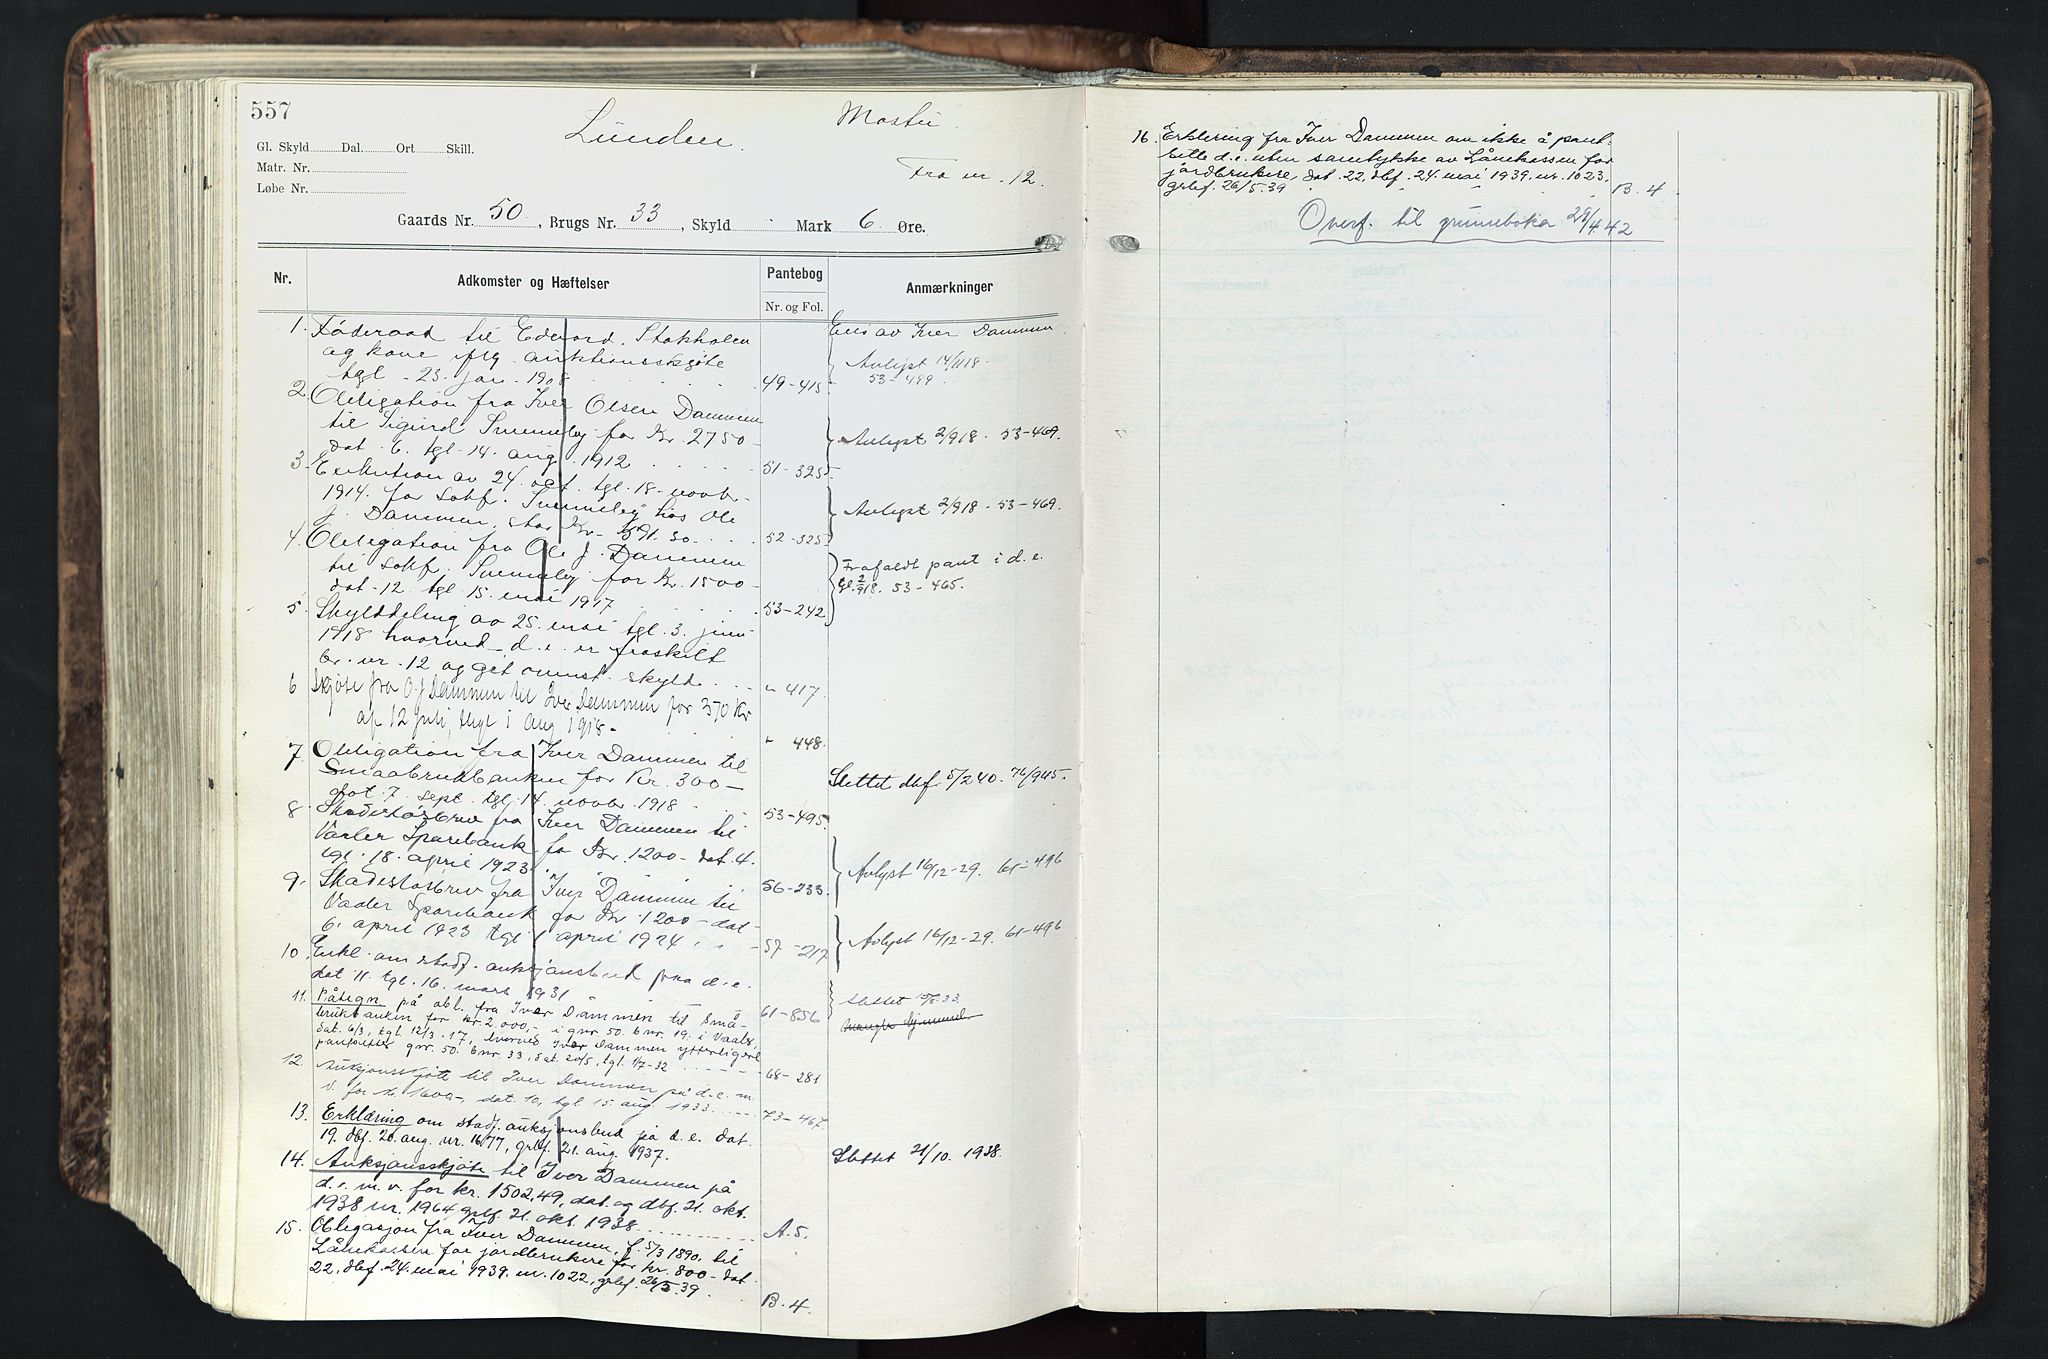 557
Lunden.
Moster
Gl. Skyld Dal. Ort Skill.
Matr. Nr.
Løbe Nr.
Fra nr. 12.
Gaards Nr. 50, Brugs Nr. 33, Skyld Mark 6 Øre.
Nr. Adkomster og Hæftelser Pantebog Anmærkninger
Nr. og Fol.
1. Føderaad til Edvard Stokholen Eies av Iver Dammen.
og kone iflg. auktionsskjøte Avlyst 14/11 18.
tgl. 23. jan. 1908 49-415 53-499
2. Obligation fra Iver Olsen Dammen
til Sigurd Svenneby for Kr. 2750- Avlyst 2/9 18. 53-469.
dat. 6. tgl. 14. aug. 1912 51-325
3. Exekution av 24. okt. tgl. 18. novbr.
1914. for sakf. Svenneby hos Ole Avlyst 2/9 18. 53-469.
J. Dammen, stor Kr. 591.30. 52-325
4. Obligation fra Ole J. Dammen Frafaldt pant i d.e.
til sakf. Svenneby for Kr. 1500- gl. 2/9 18. 53-465.
dat. 12. tgl. 15. mai 1917 53-242
5. Skylddeling av 25. mai tgl. 3. juni
1918 hvorved d.e. er fraskilt
br. nr. 12 og git ovenst. skyld. " 417.
6 Skjøte fra O. J. Dammen til Iver Dammen for 370 Kr
af 12 juli, thgl 1 Aug 1918. " 448.
7. Obligation fra Iver Dammen til
Smaabrukbanken for Kr. 300- Slettet dbf. 5/2 40. 76/945.
dat. 7. sept. tgl. 14. novbr. 1918 53-495
8. Skadesløsbrev fra Iver Dammen til
Vaaler Sparebank for Kr. 1200- dat. 4. Avlyst 16/12-29. 61-496
tgl. 18. april 1923 56-233
9. Skadesløsbrev fra Iver Dammen til
Vaaler Sparebank for Kr. 1200- dat. Avlyst 16/12-29. 61-496
6. april 1923 tgl. 1 april 1924 57-217
10. Erkl. om stadf. auksjonsbud paa d.e.
dat 11. tgl. 16. mars 1931 61-856 Slettet 15/8 33.
11. Påtegn. på obl. fra Iver Dammen til Små-
brukbanken for kr. 2.000,- i gnr. 50. bnr. 19. i Vaaler,
dat. 6/3, tgl. 12/3. 17, hvorved Iver Dammen ytterligere
pantsetter gnr. 50. bnr. 33, dat. 20/5, tgl. 1/7-32 68-281
12. Auksjonsskjøte til Iver Dammen på d.e. m.
v. for kr. 1600,-, dat. 10, tgl 15. aug 1933 73-467.
13. Erklæring om stadf. auksjonsbud på d.e. dat.
19. dbf. 20. aug. nr. 1677, grbf. 21. aug. 1937. Slettet 21/10. 1938.
14. Auksjonsskjøte til Iver Dammen på
d.e. m. v. for kr. 1502,49, dat. og dbf. 21. okt.
1938 nr. 1964 grbf. 21. okt. 1938 A. 5.
15. Obligasjon fra Iver Dammen, f. 5/3 1890. til
Lånekassen for jordbrukere for kr. 800- dat.
22, dbf. 24. mai 1939. nr. 1022, grbf. 26/5. 39. B. 4.
16. Erklering fra Iver Dammen om ikke å pant-
sette d.e. uten samtykke av Lånekassen for
jordbrukere, dat. 22, dbf. 24. mai 1939. nr. 1023,
grbf. 26/5. 39 B. 4.
Overf. til grunnboka 28/4. 42